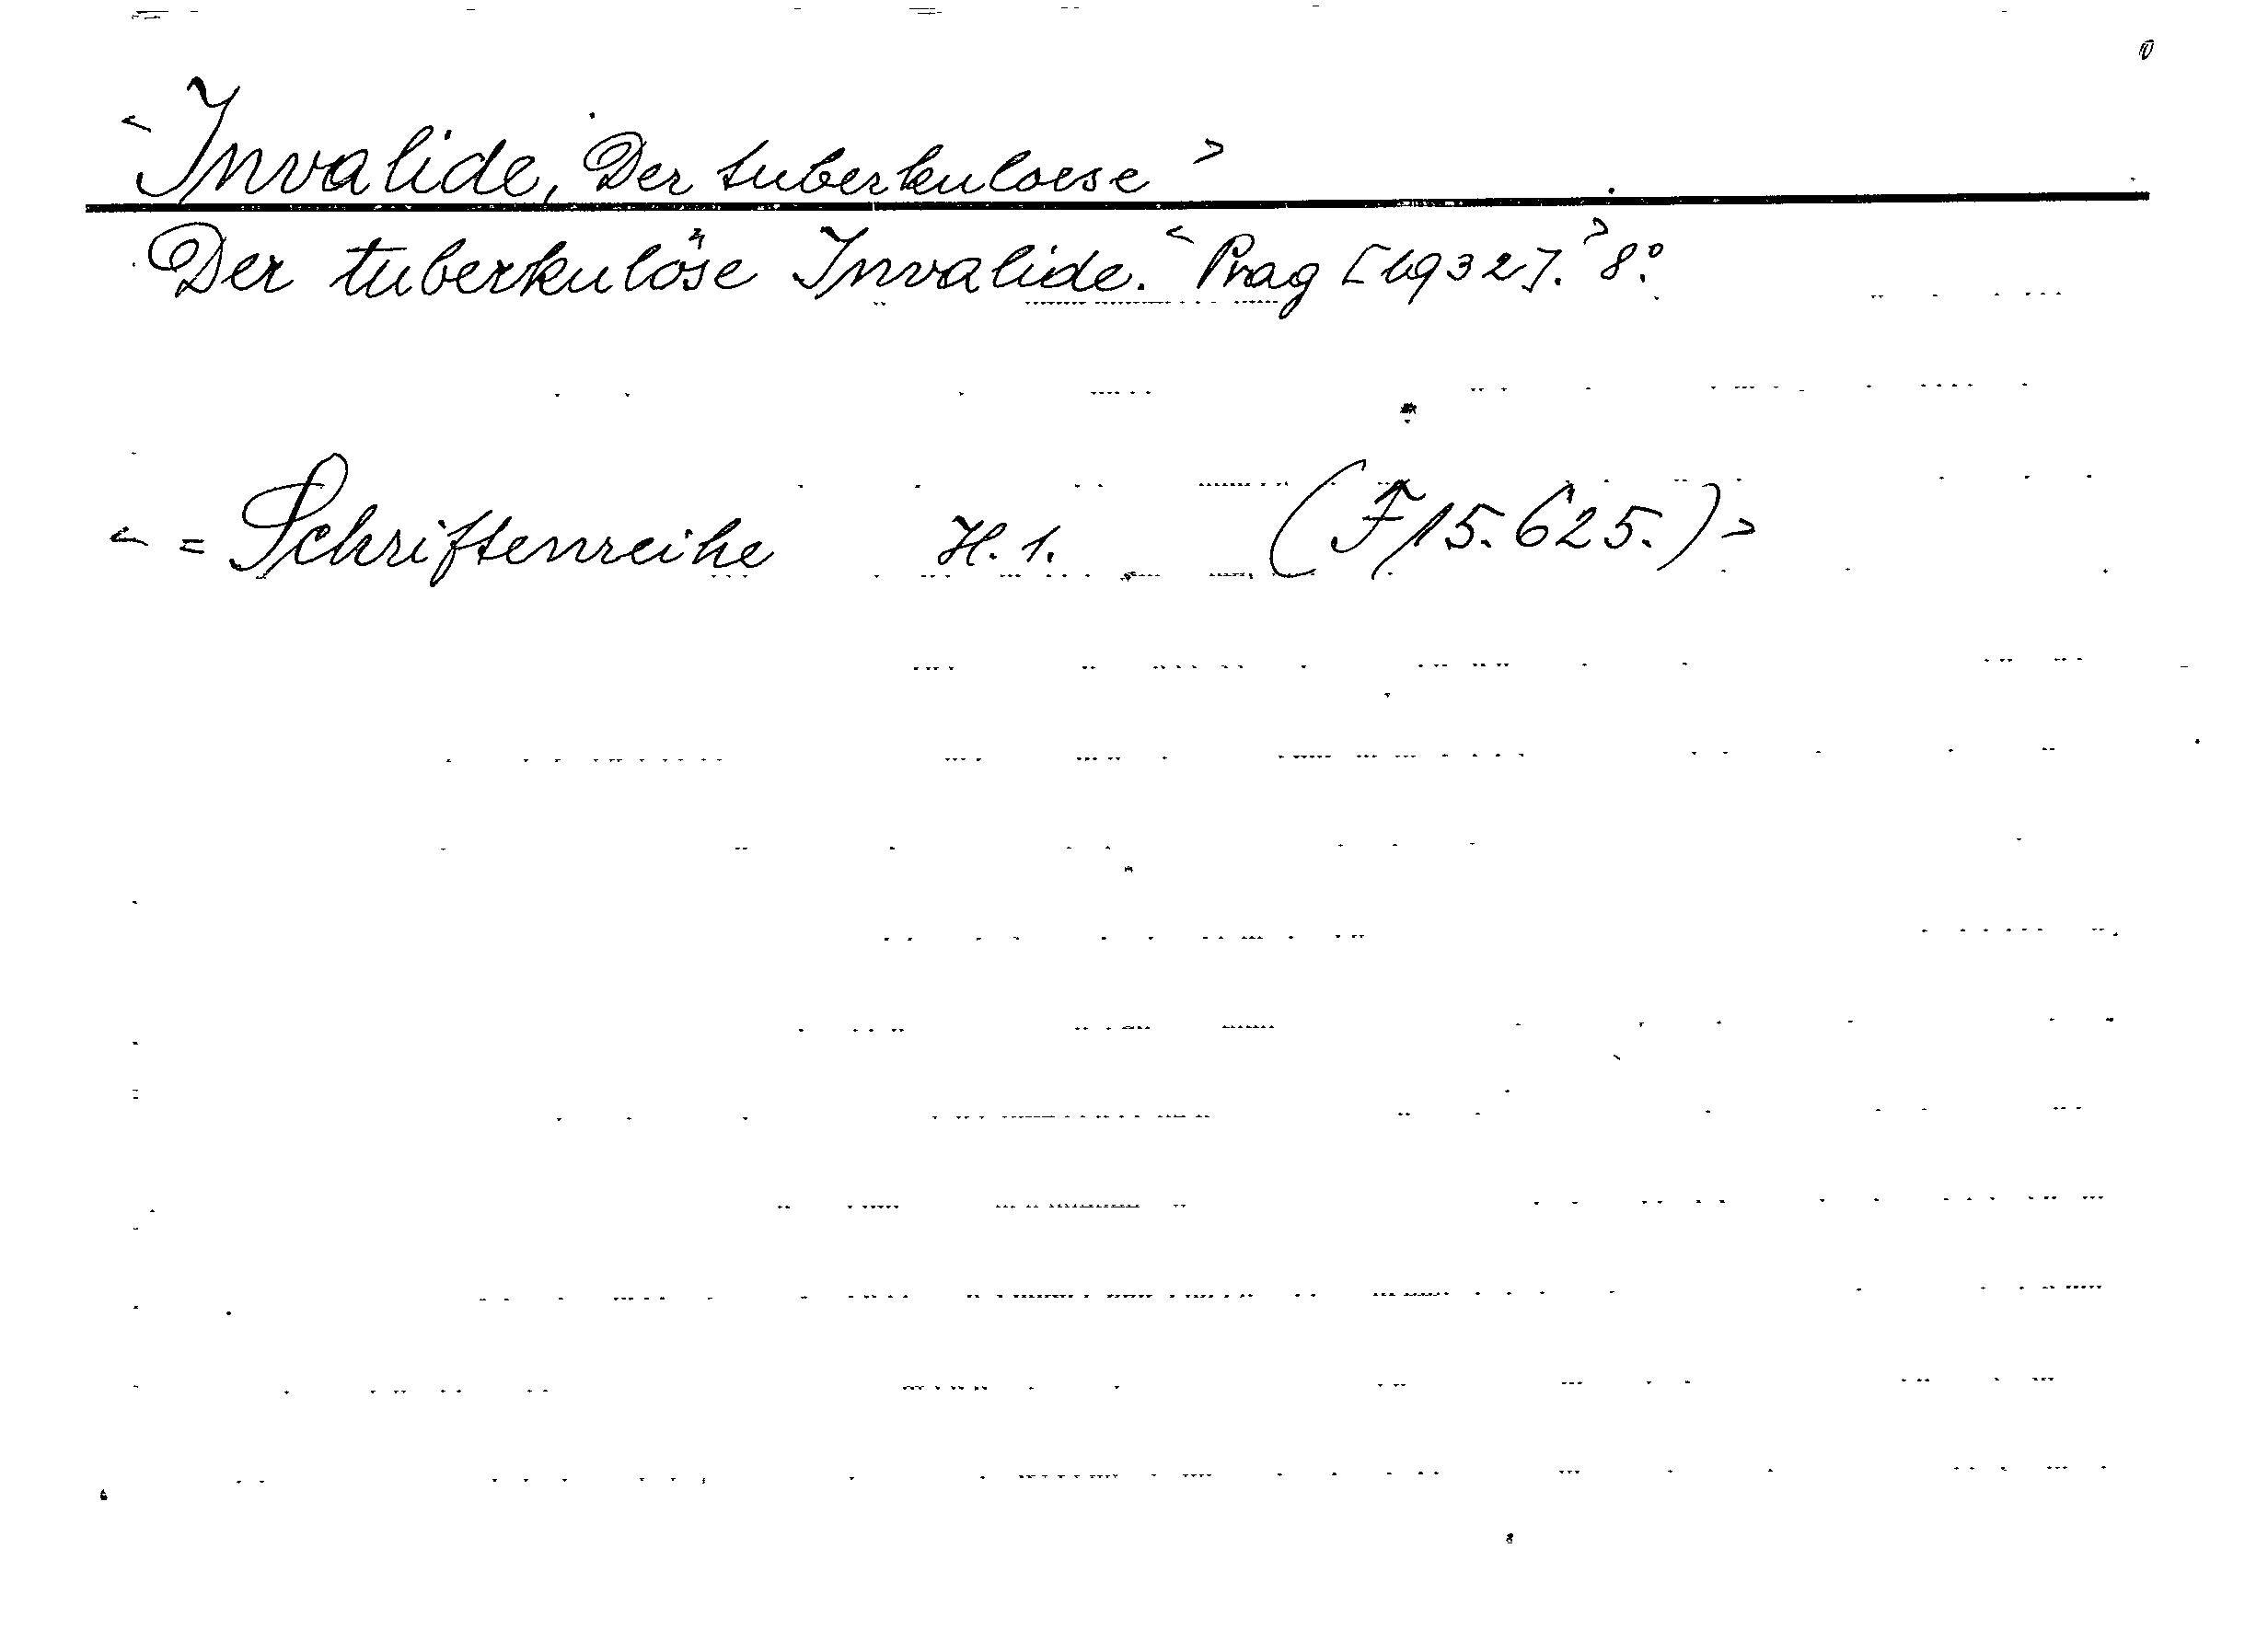 <Invalide, Der tuberkuloese>
Der tuberkulöse Invalide. <Prag [1932].> 8°.
<= Schriftenreihe H. 1. (F 15.625.)>